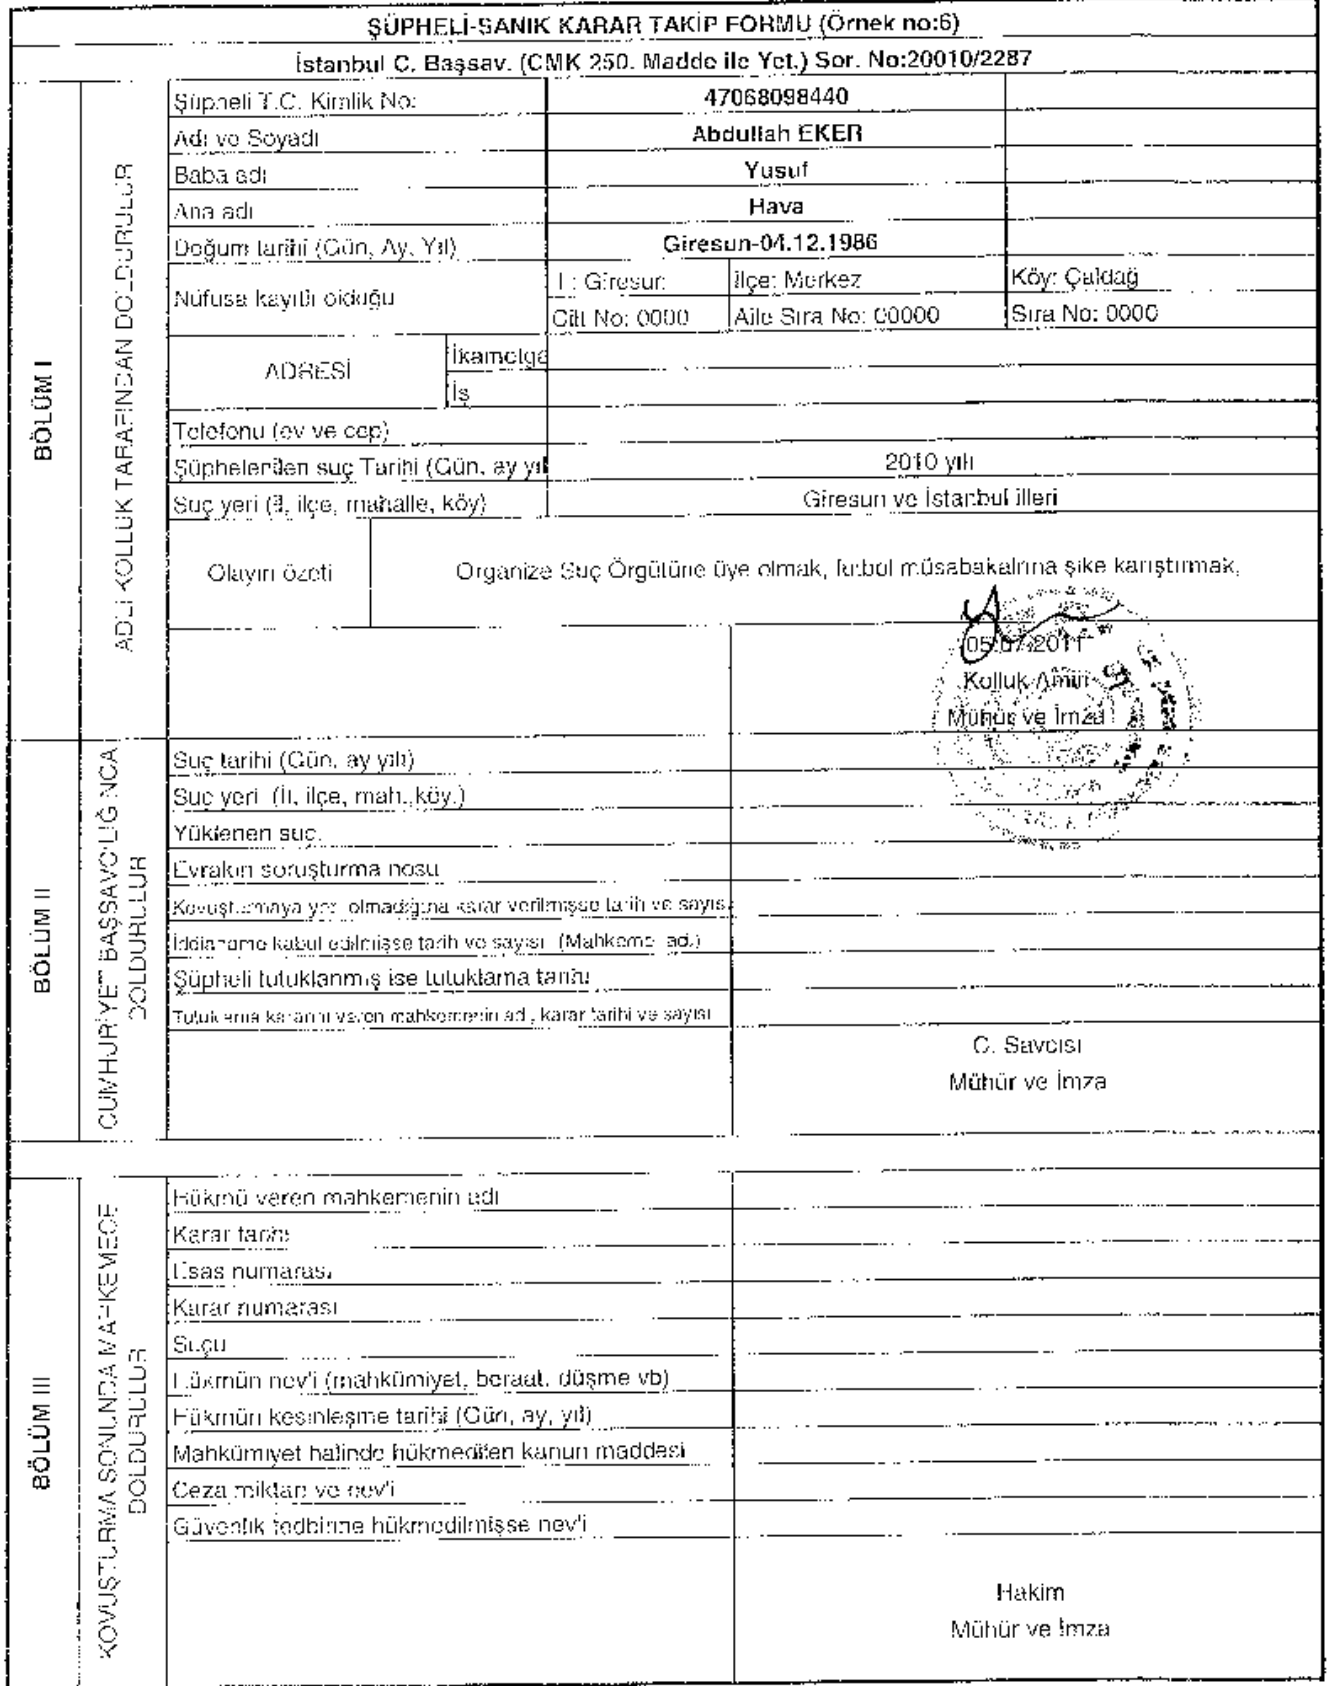 ŞÜPHELİ-SANIK KARAR TAKİP FORMU (Örnek no:6)
İstanbul C. Başsav. (CMK 250. Madde ile Yet.) Sor. No:20010/2287
BÖLÜM I
ADLİ KOLLUK TARAFINDAN DOLDURULUR
Şüpheli T.C. Kimlik No: 47068098440
Adı ve Soyadı Abdullah EKER
Baba adı Yusuf
Ana adı Hava
Doğum tarihi (Gün, Ay, Yıl) Giresun-04.12.1986
Nüfusa kayıtlı olduğu
İl: Giresun İlçe: Merkez Köy: Çaldağ
Cilt No: 0000 Aile Sıra No: 00000 Sıra No: 0000
ADRESİ
İkametga
İş
Telefonu (ev ve cep)
Şüphelenilen suç Tarihi (Gün, ay yıl 2010 yılı
Suç yeri (İl, ilçe, mahalle, köy) Giresun ve İstanbul illeri
Olayın özeti Organize Suç Örgütüne üye olmak, futbol müsabakalrına şike karıştırmak,
05.07.2011
Kolluk Amiri
Mühür ve İmza
BÖLÜM II
CUMHURİYET BAŞSAVCILIĞINCA
DOLDURULUR
Suç tarihi (Gün, ay yılı)
Suç yeri (İl, ilçe, mah., köy.)
Yüklenen suç.
Evrakın soruşturma nosu
Kovuşturmaya yer olmadığına karar verilmişse tarih ve sayısı
İddianame kabul edilmişse tarih ve sayısı (Mahkeme adı)
Şüpheli tutuklanmış ise tutuklama tarihi
Tutuklama kararını veren mahkemenin adı, karar tarihi ve sayısı
C. Savcısı
Mühür ve İmza
BÖLÜM III
KOVUŞTURMA SONUNDA MAHKEMECE
DOLDURULUR
Hükmü veren mahkemenin adı
Karar tarihi
Esas numarası
Karar numarası
Suçu
Hükmün nev'i (mahkümiyet, beraat, düşme vb)
Hükmün kesinleşme tarihi (Gün, ay, yıl)
Mahkümiyet halinde hükmedilen kanun maddesi
Ceza miktarı ve nev'i
Güvenlik tedbirine hükmedilmişse nev'i
Hakim
Mühür ve İmza